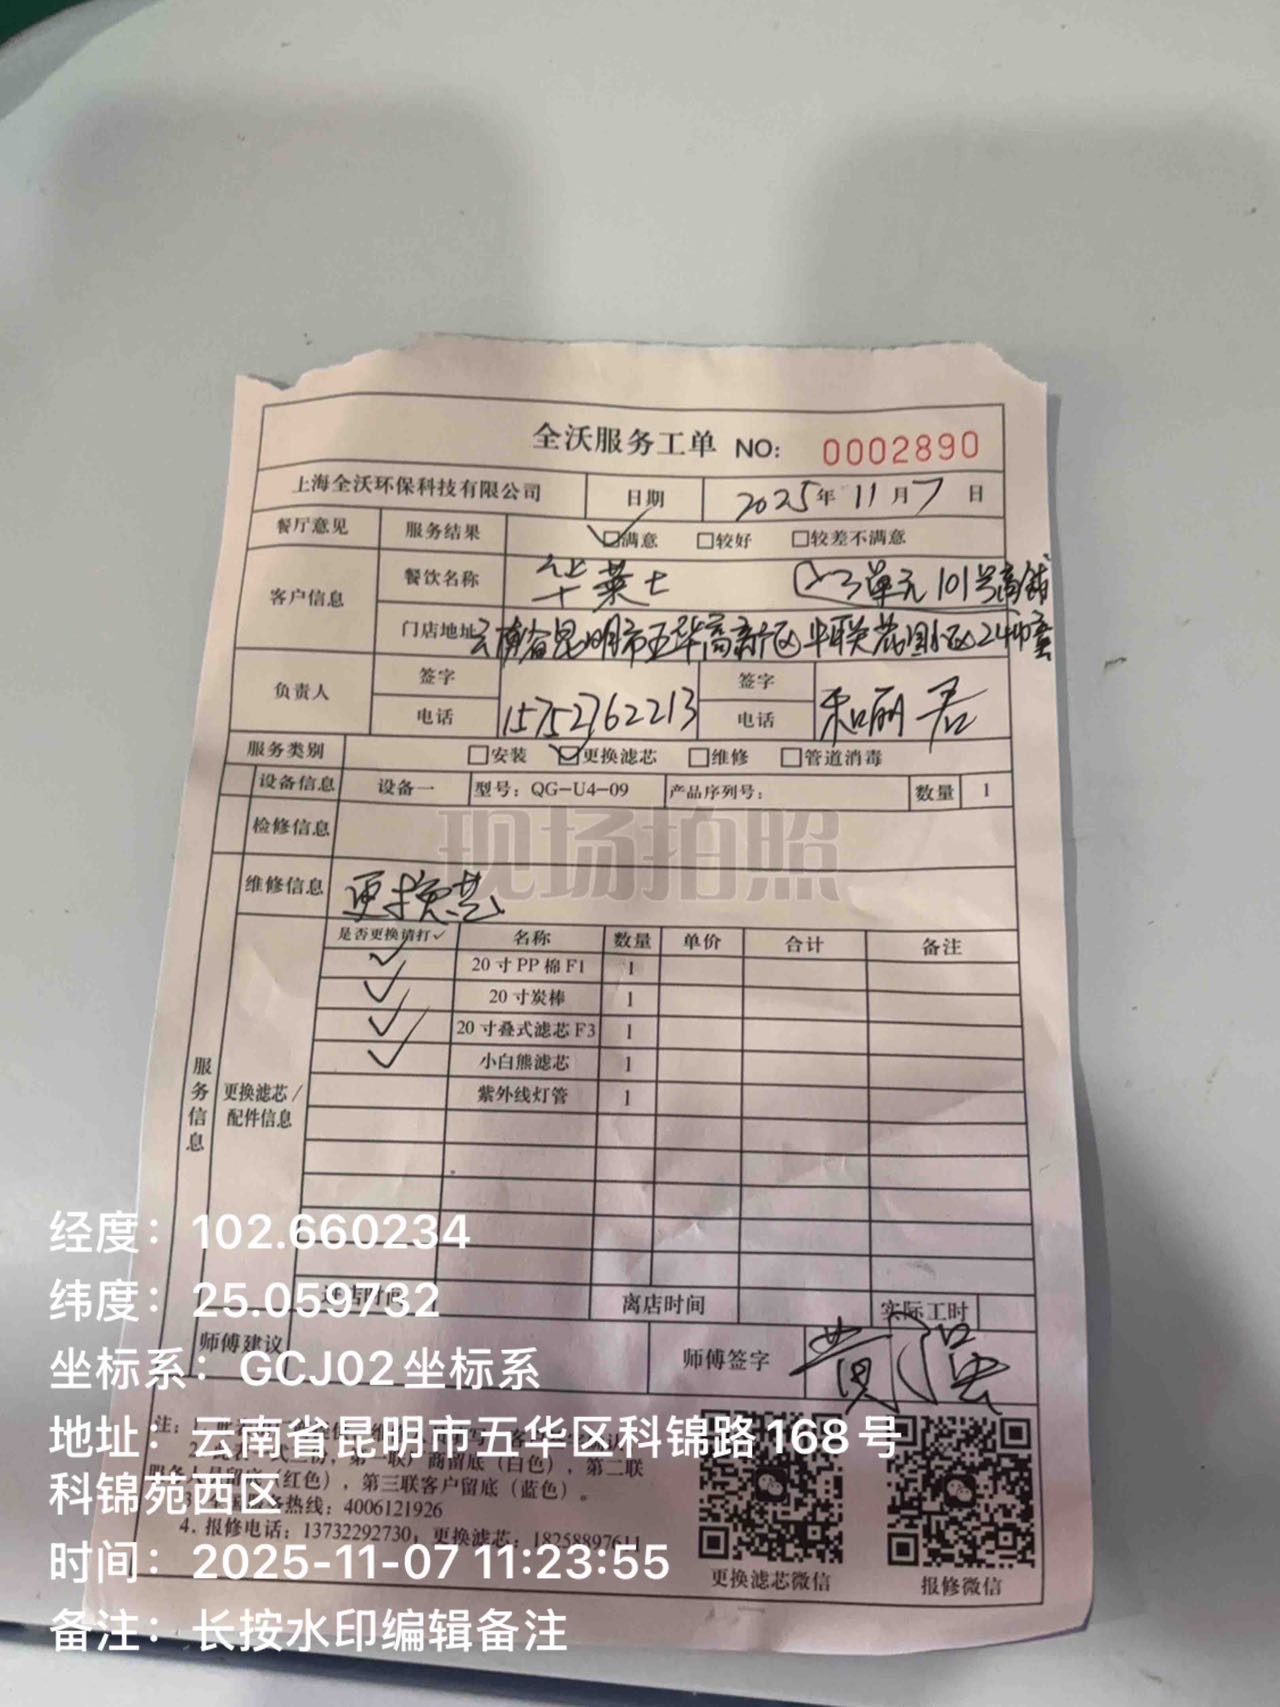 全沃服务工单 NO: 0002890
上海全沃环保科技有限公司 日期 2025年11月7日
餐厅意见 服务结果 满意 较好 较差不满意
客户信息 餐饮名称 华莱士 3单元101号商铺
门店地址 云南省昆明市五华高新区 联花园小区24幢
负责人 签字 签字
电话 15752762213 电话 和丽君
服务类别 安装 更换滤芯 维修 管道消毒
设备信息 设备一 型号: QG-U4-09 产品序列号: 数量 1
检修信息
现场拍照
维修信息 更换芯
服务信息
更换滤芯/配件信息
是否更换请打✓ 名称 数量 单价 合计 备注
✓ 20寸PP棉F1 1
✓ 20寸炭棒 1
✓ 20寸叠式滤芯F3 1
✓ 小白熊滤芯 1
紫外线灯管 1
进店时间 离店时间 实际工时
师傅建议 师傅签字
注:
第一联厂商留底(白色),第二联
留底(红色),第三联客户留底(蓝色)。
热线: 4006121926
4. 报修电话: 13732292730; 更换滤芯: 18258897611
更换滤芯微信 报修微信
经度: 102.660234
纬度: 25.059732
坐标系: GCJ02坐标系
地址: 云南省昆明市五华区科锦路168号
科锦苑西区
时间: 2025-11-07 11:23:55
备注: 长按水印编辑备注